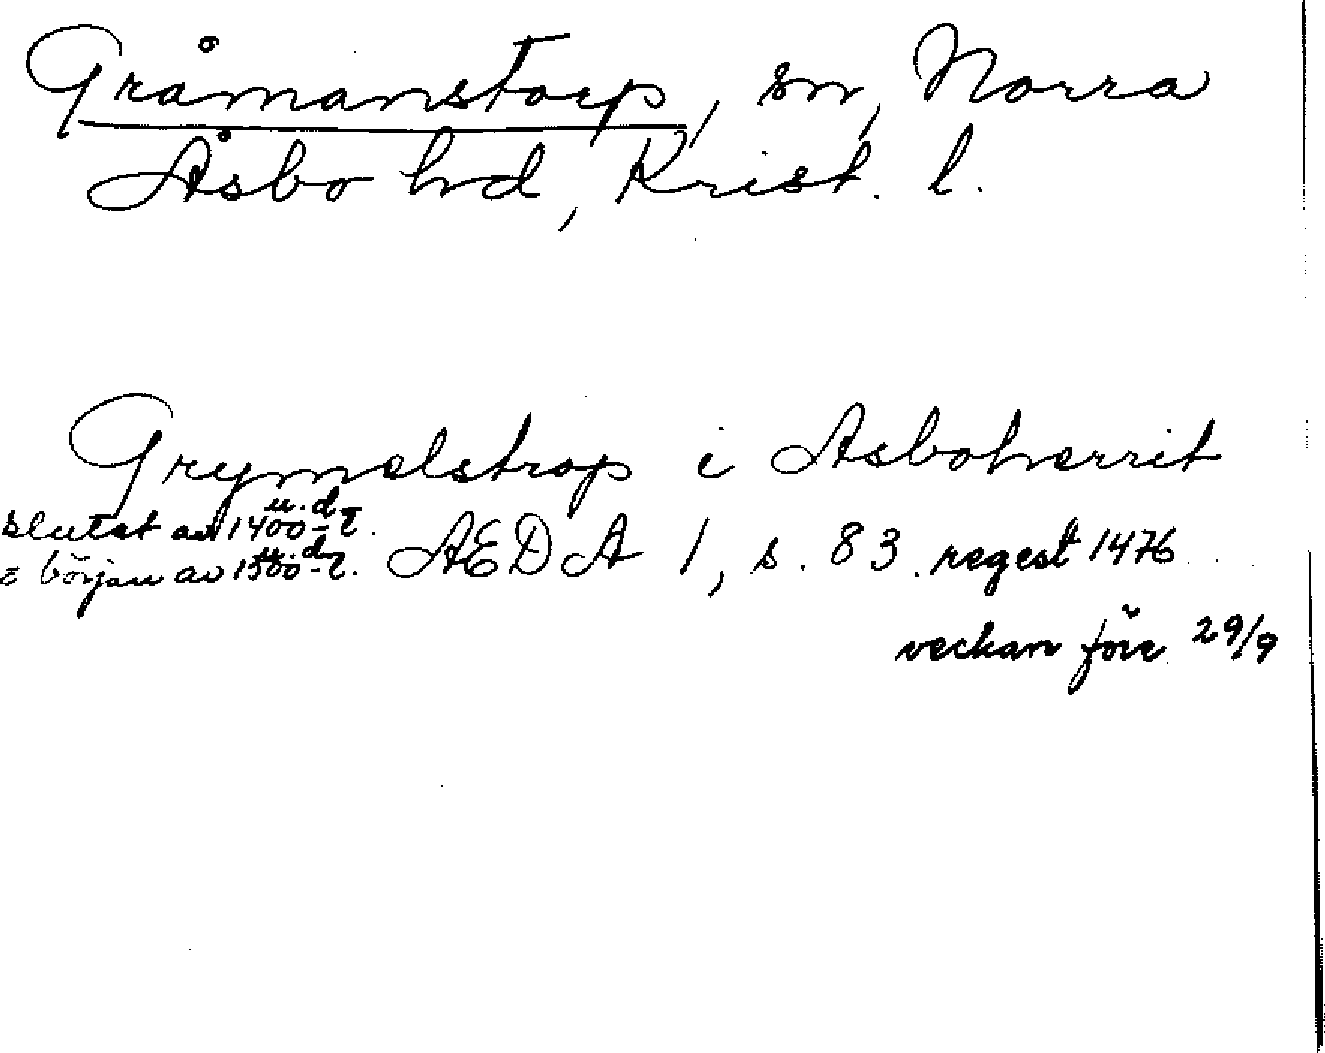 Gråmanstorp, sn, Norra
Åsbo hd, Krist. l.
Grymelstrop i Asboherrit
slutet av 1400-t.
början av 1500-t. AEDA 1, s. 83. regest 1476
veckan före 29/9